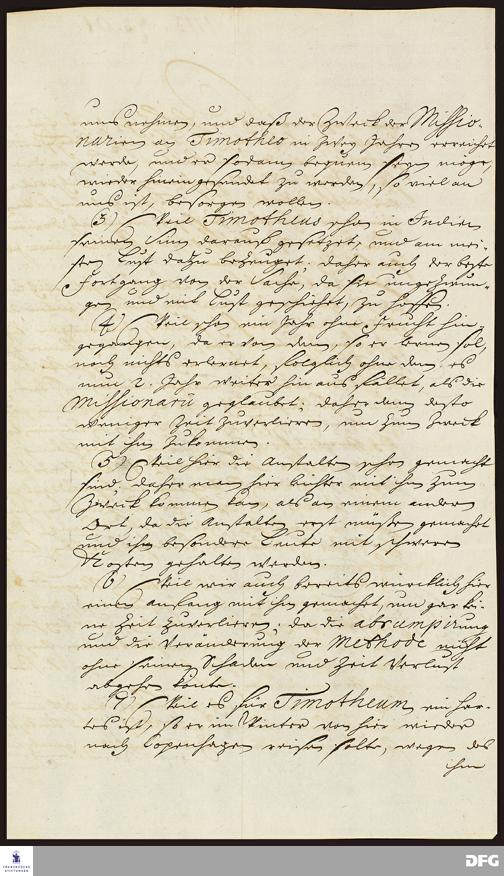 uns nehmen, und daß der Zweck der Missio-
narien an Timotheo in zwey Jahren erreichet
werde, und er sodann bequem seyn möge,
wieder hinein gesendet zu werden, so viel an
uns ist, besorgen wollen.
3) Weil Timotheus schon in Indien
seinen Sinn darauf gesetzet, und am mei-
sten Lust dazu bezeuget. daher auch der beste
Fortgang von der Sache, da sie ungezwun-
gen und mit Lust geschiehet, zu hoffen.
4) Weil schon ein Jahr ohne Frucht hin-
gegangen, da er von dem, so er lernen sol,
noch nichts erlernet, folglich ohne dem es
nun 2. Jahr weiter hinaus fället, als die
Missionarii geglaubet; daher denn desto
weniger Zeit zu verlieren, um zum Zweck
mit ihm zu kommen.
5) Weil hier die Anstalten schon gemacht
sind, daher man hier leichter mit ihm zum
Zweck kommen kan, als an einem andern
Ort, da die Anstalten erst müssen gemacht
und ihm besondere Leute mit schweren
Kosten gehalten werden.
6) Weil wir auch bereits würcklich hier
einen anfang mit ihm gemachet, um gar kei-
ne Zeit zu verlieren; da die abrumpirung
und die Veränderung der Methode nicht
ohne seinen Schaden und Zeit Verlust
abgehen könte.
7) Weil es für Timotheum ein har-
tes ist, so er im Winter von hier wieder
nach Copenhagen reisen solte, wegen des
ihm
FRANCKESCHE
STIFTUNGEN
DFG